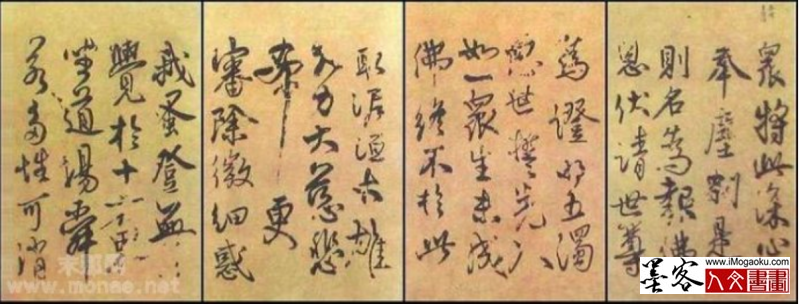 眾將此深心
奉塵剎是
則名為報佛
恩伏請世尊
為證明五濁
惡世誓先入
如一眾生未成
佛終不於此
取泥洹大雄
大力大慈悲
希更
審除微細惑
我蚤登無
覺於十方界
坐道場舜
若多性可銷
www.monee.net
www.iMogaoku.com
墨客
人文書畫